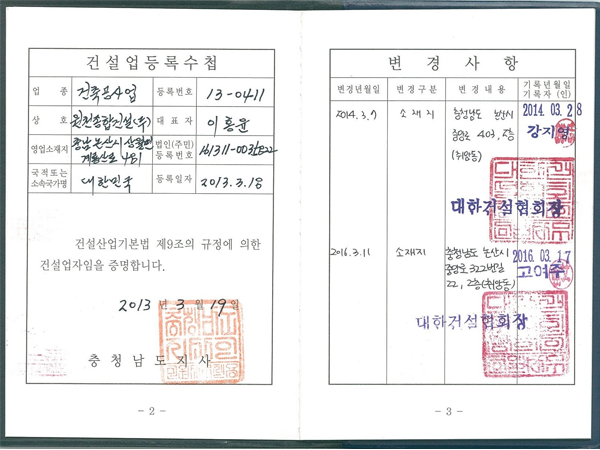 건설업등록수첩
업 종 건축공사업 등록번호 13-0411
상 호 원진종합건설(주) 대 표 자 이홍운
영업소재지 충남 논산시 상월면 법인(주민)
계룡산로 등록번호
국적또는 대한민국 등록일자 2013.3.18
소속국가명
건설산업기본법 제9조의 규정에 의한
건설업자임을 증명합니다.
2013년 3월 19일
충청남도지사
- 2 -
변경사항
변경년월일 변경구분 변경내용 기록년월일
기록자 (인)
2014.3.7 소재지 충청남도 논산시 2014. 03. 28
403, 2층 강지영
(취암동)
대한건설협회장
2016.3.11 소재지 충청남도 논산시 2016. 03. 17
중앙로322번길 고여주
22, 2층(취암동)
대한건설협회장
- 3 -